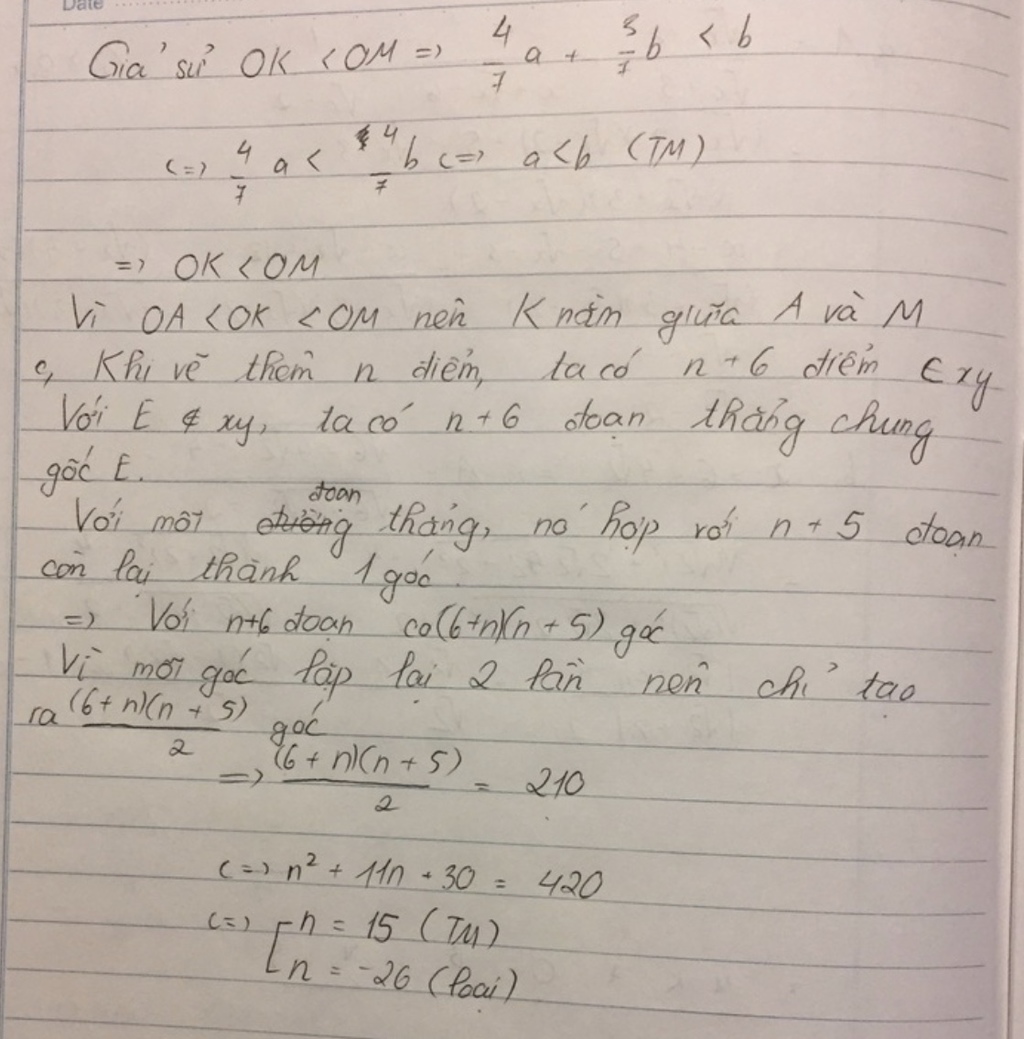 Date
Giả sử OK < OM => 4/7 a + 3/7 b < b
<=> 4/7 a < 4/7 b <=> a < b (TM)
=> OK < OM
Vì OA < OK < OM nên K nằm giữa A và M
c, Khi vẽ thêm n điểm, ta có n + 6 điểm ∈ xy
Với E ∉ xy, ta có n + 6 đoạn thẳng chung
gốc E.
Với mỗi đoạn thẳng, nó hợp với n + 5 đoạn
còn lại thành 1 góc.
=> Với n+6 đoạn có (6+n)(n + 5) góc
Vì mỗi góc lặp lại 2 lần nên chỉ tạo
ra (6 + n)(n + 5)/2 góc
=> (6 + n)(n + 5)/2 = 210
<=> n² + 11n + 30 = 420
<=> [ n = 15 (TM)
n = -26 (loại)